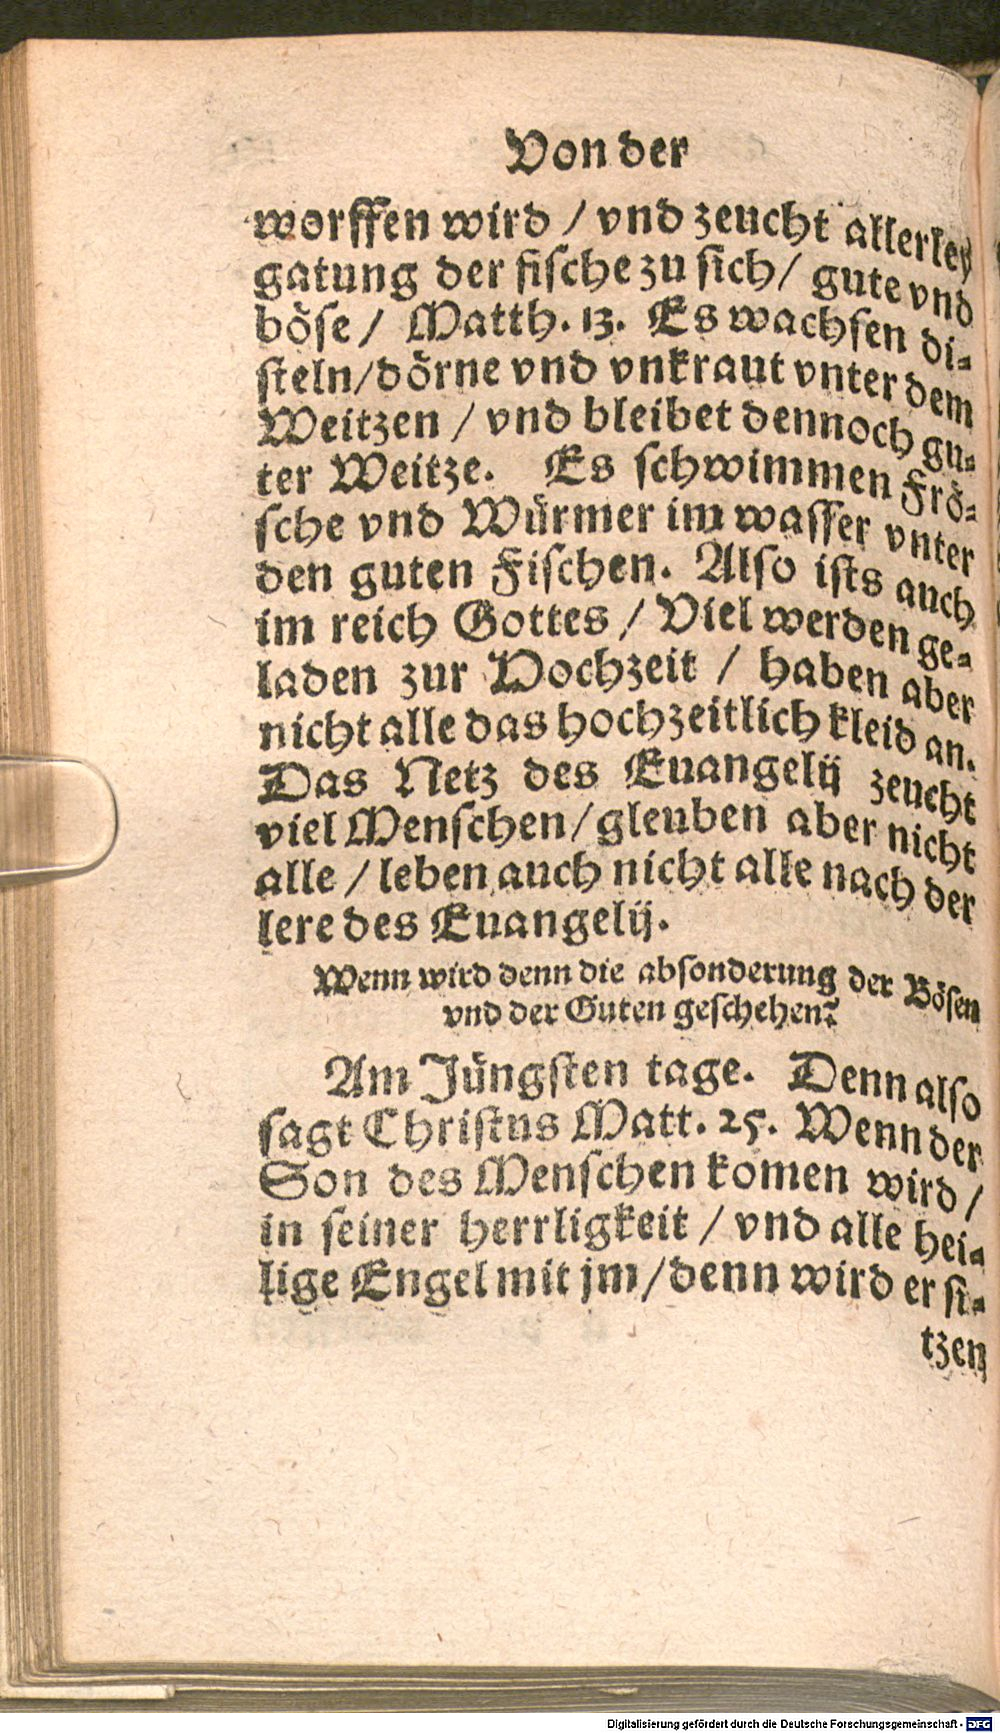 Von der
worffen wird / vnd zeucht allerley
gatung der fische zu sich / gute vnd
böse / Matth. 13. Es wachsen di-
steln / dörne vnd vnkraut vnter dem
Weitzen / vnd bleibet dennoch gu-
ter Weitze. Es schwimmen Frö-
sche vnd Würmer im wasser vnter
den guten Fischen. Also ists auch
im reich Gottes / Viel werden ge-
laden zur Hochzeit / haben aber
nicht alle das hochzeitlich kleid an.
Das Netz des Euangelij zeucht
viel Menschen / gleuben aber nicht
alle / leben auch nicht alle nach der
lere des Euangelij.
Wenn wird denn die absonderung der Bösen
vnd der Guten geschehen?
Am Jüngsten tage. Denn also
sagt Christus Matt. 25. Wenn der
Son des Menschen komen wird /
in seiner herrligkeit / vnd alle hei-
lige Engel mit jm / denn wird er si-
tzen
Digitalisierung gefördert durch die Deutsche Forschungsgemeinschaft - DFG